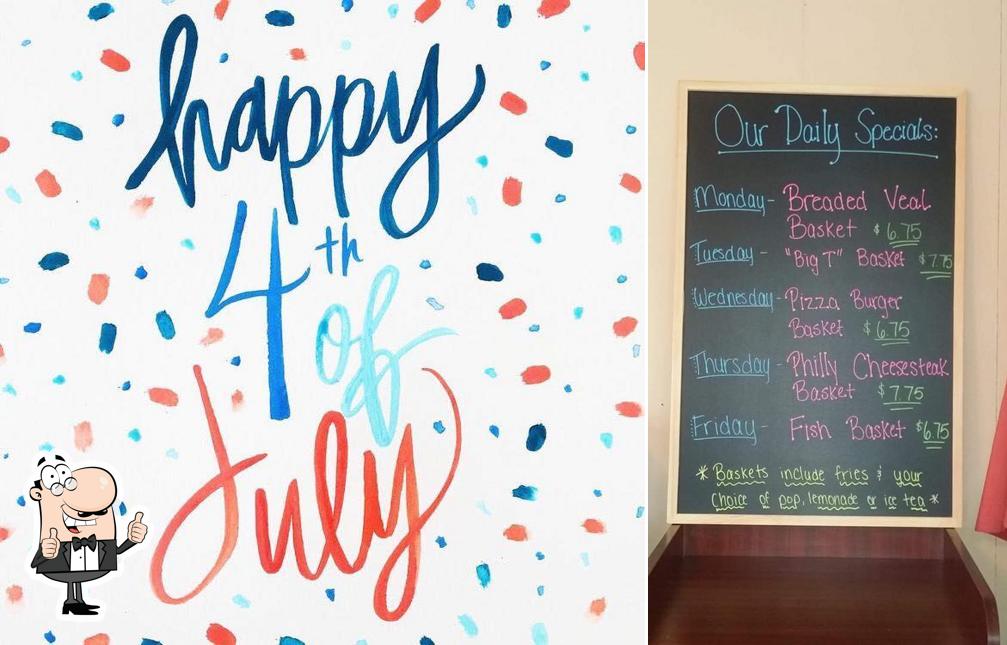 happy
4th
of
July
Our Daily Specials:
Monday - Breaded Veal
Basket $6.75
Tuesday - "Big T" Basket $7.75
Wednesday - Pizza Burger
Basket $6.75
Thursday - Philly Cheesesteak
Basket $7.75
Friday - Fish Basket $6.75
* Baskets include fries & your
choice of pop, lemonade or ice tea *